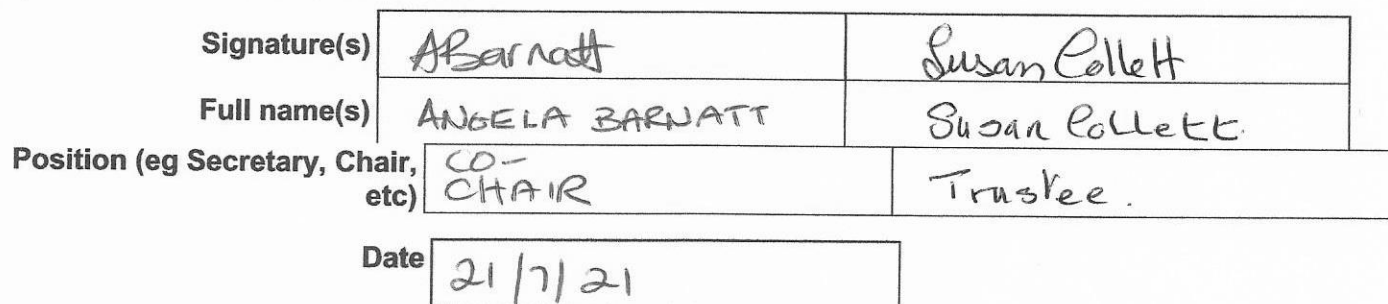 Signature(s) ABarnatt Susan Collett
Full name(s) ANGELA BARNATT Susan Collett.
Position (eg Secretary, Chair, CO-
etc) CHAIR Trustee.
Date 21/7/21